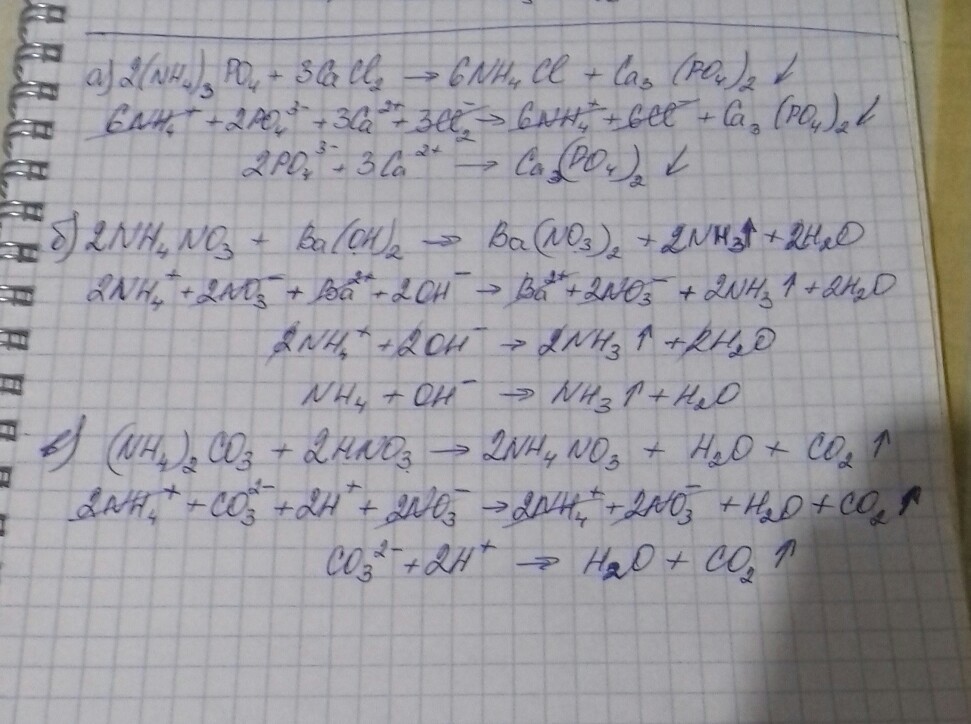 а) 2(NH₄)₃PO₄ + 3CaCl₂ → 6NH₄Cl + Ca₃(PO₄)₂↓
6NH₄⁺ + 2PO₄³⁻ + 3Ca²⁺ + 3Cl₂⁻ → 6NH₄⁺ + 6Cl⁻ + Ca₃(PO₄)₂↓
2PO₄³⁻ + 3Ca²⁺ → Ca₃(PO₄)₂↓
б) 2NH₄NO₃ + Ba(OH)₂ → Ba(NO₃)₂ + 2NH₃↑ + 2H₂O
2NH₄⁺ + 2NO₃⁻ + Ba²⁺ + 2OH⁻ → Ba²⁺ + 2NO₃⁻ + 2NH₃↑ + 2H₂O
2NH₄⁺ + 2OH⁻ → 2NH₃↑ + 2H₂O
NH₄ + OH⁻ → NH₃↑ + H₂O
в) (NH₄)₂CO₃ + 2HNO₃ → 2NH₄NO₃ + H₂O + CO₂↑
2NH₄⁺ + CO₃²⁻ + 2H⁺ + 2NO₃⁻ → 2NH₄⁺ + 2NO₃⁻ + H₂O + CO₂↑
CO₃²⁻ + 2H⁺ → H₂O + CO₂↑